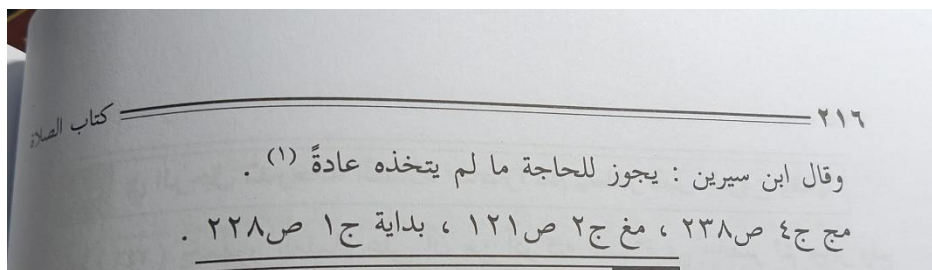 ٢١٦ كتاب الصلاة
وقال ابن سيرين : يجوز للحاجة ما لم يتخذه عادةً (١) .
مج ج٤ ص٢٣٨ ، مغ ج٢ ص١٢١ ، بداية ج١ ص٢٢٨ .